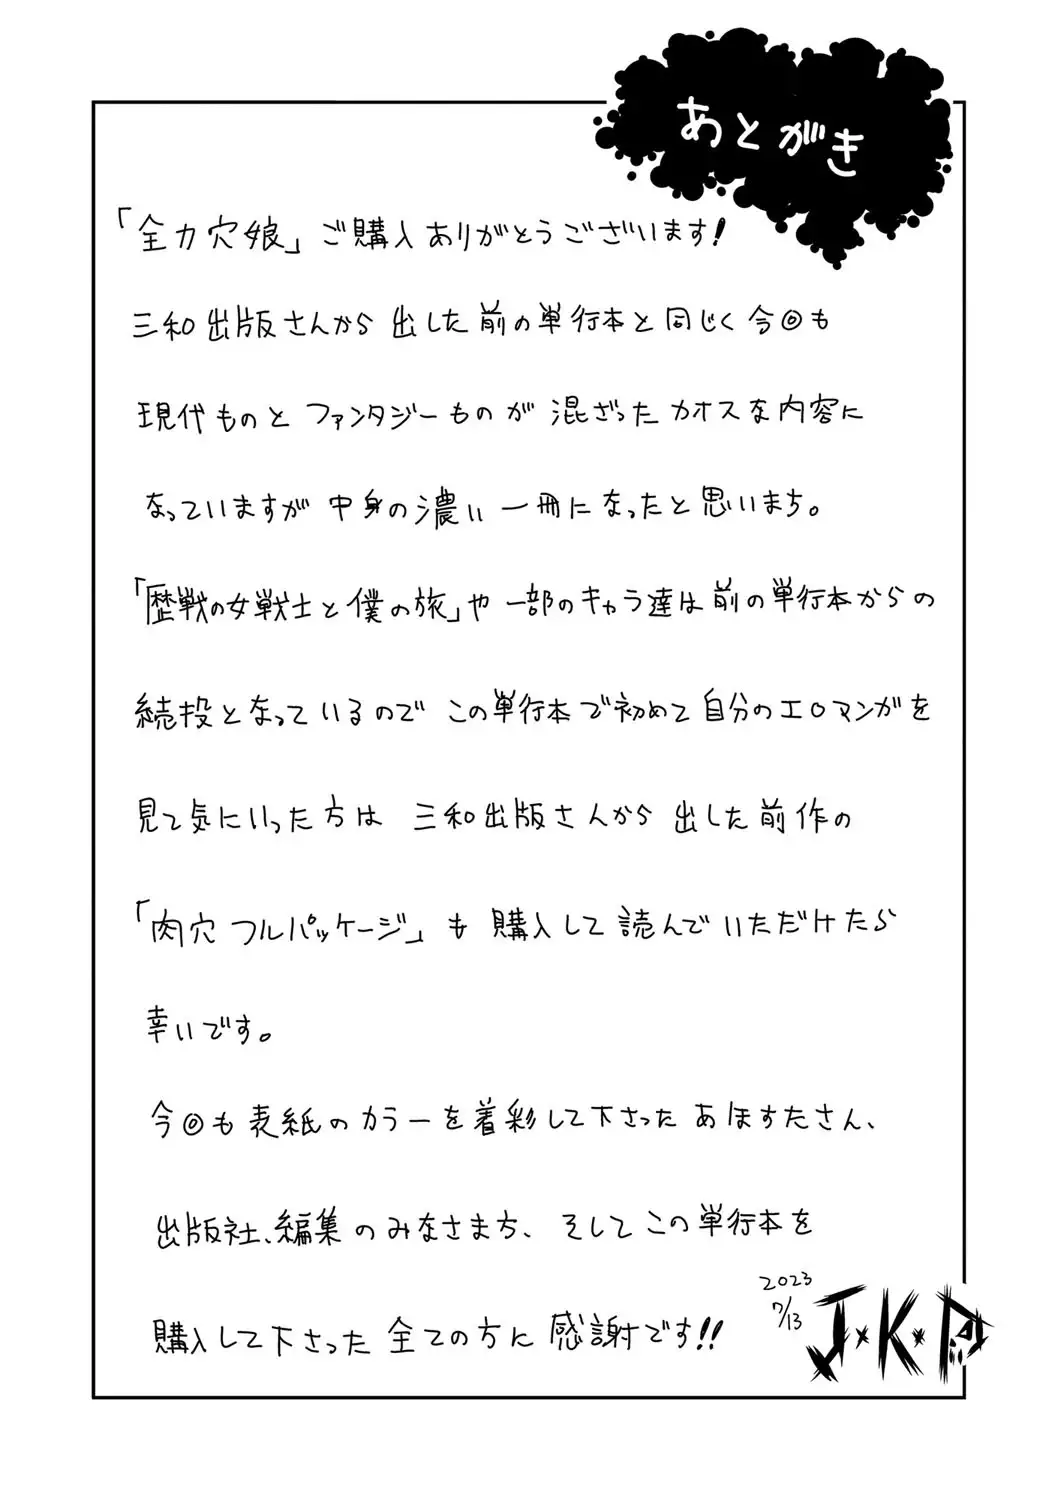 あとがき
「全力穴娘」ご購入ありがとうございます!
三和出版さんから出した前の単行本と同じく今回も
現代ものとファンタジーものが混ざったカオスな内容に
なっていますが中身の濃い一冊になったと思いまち。
「歴戦の女戦士と僕の旅」や一部のキャラ達は前の単行本からの
続投となっているのでこの単行本で初めて自分のエロマンガを
見て気にいった方は三和出版さんから出した前作の
「肉穴フルパッケージ」も購入して読んでいただけたら
幸いです。
今回も表紙のカラーを着彩して下さったあほすたさん、
出版社、編集のみなさまち、そしてこの単行本を
購入して下さった全ての方に感謝です!!
2023
7/13
J×K×P